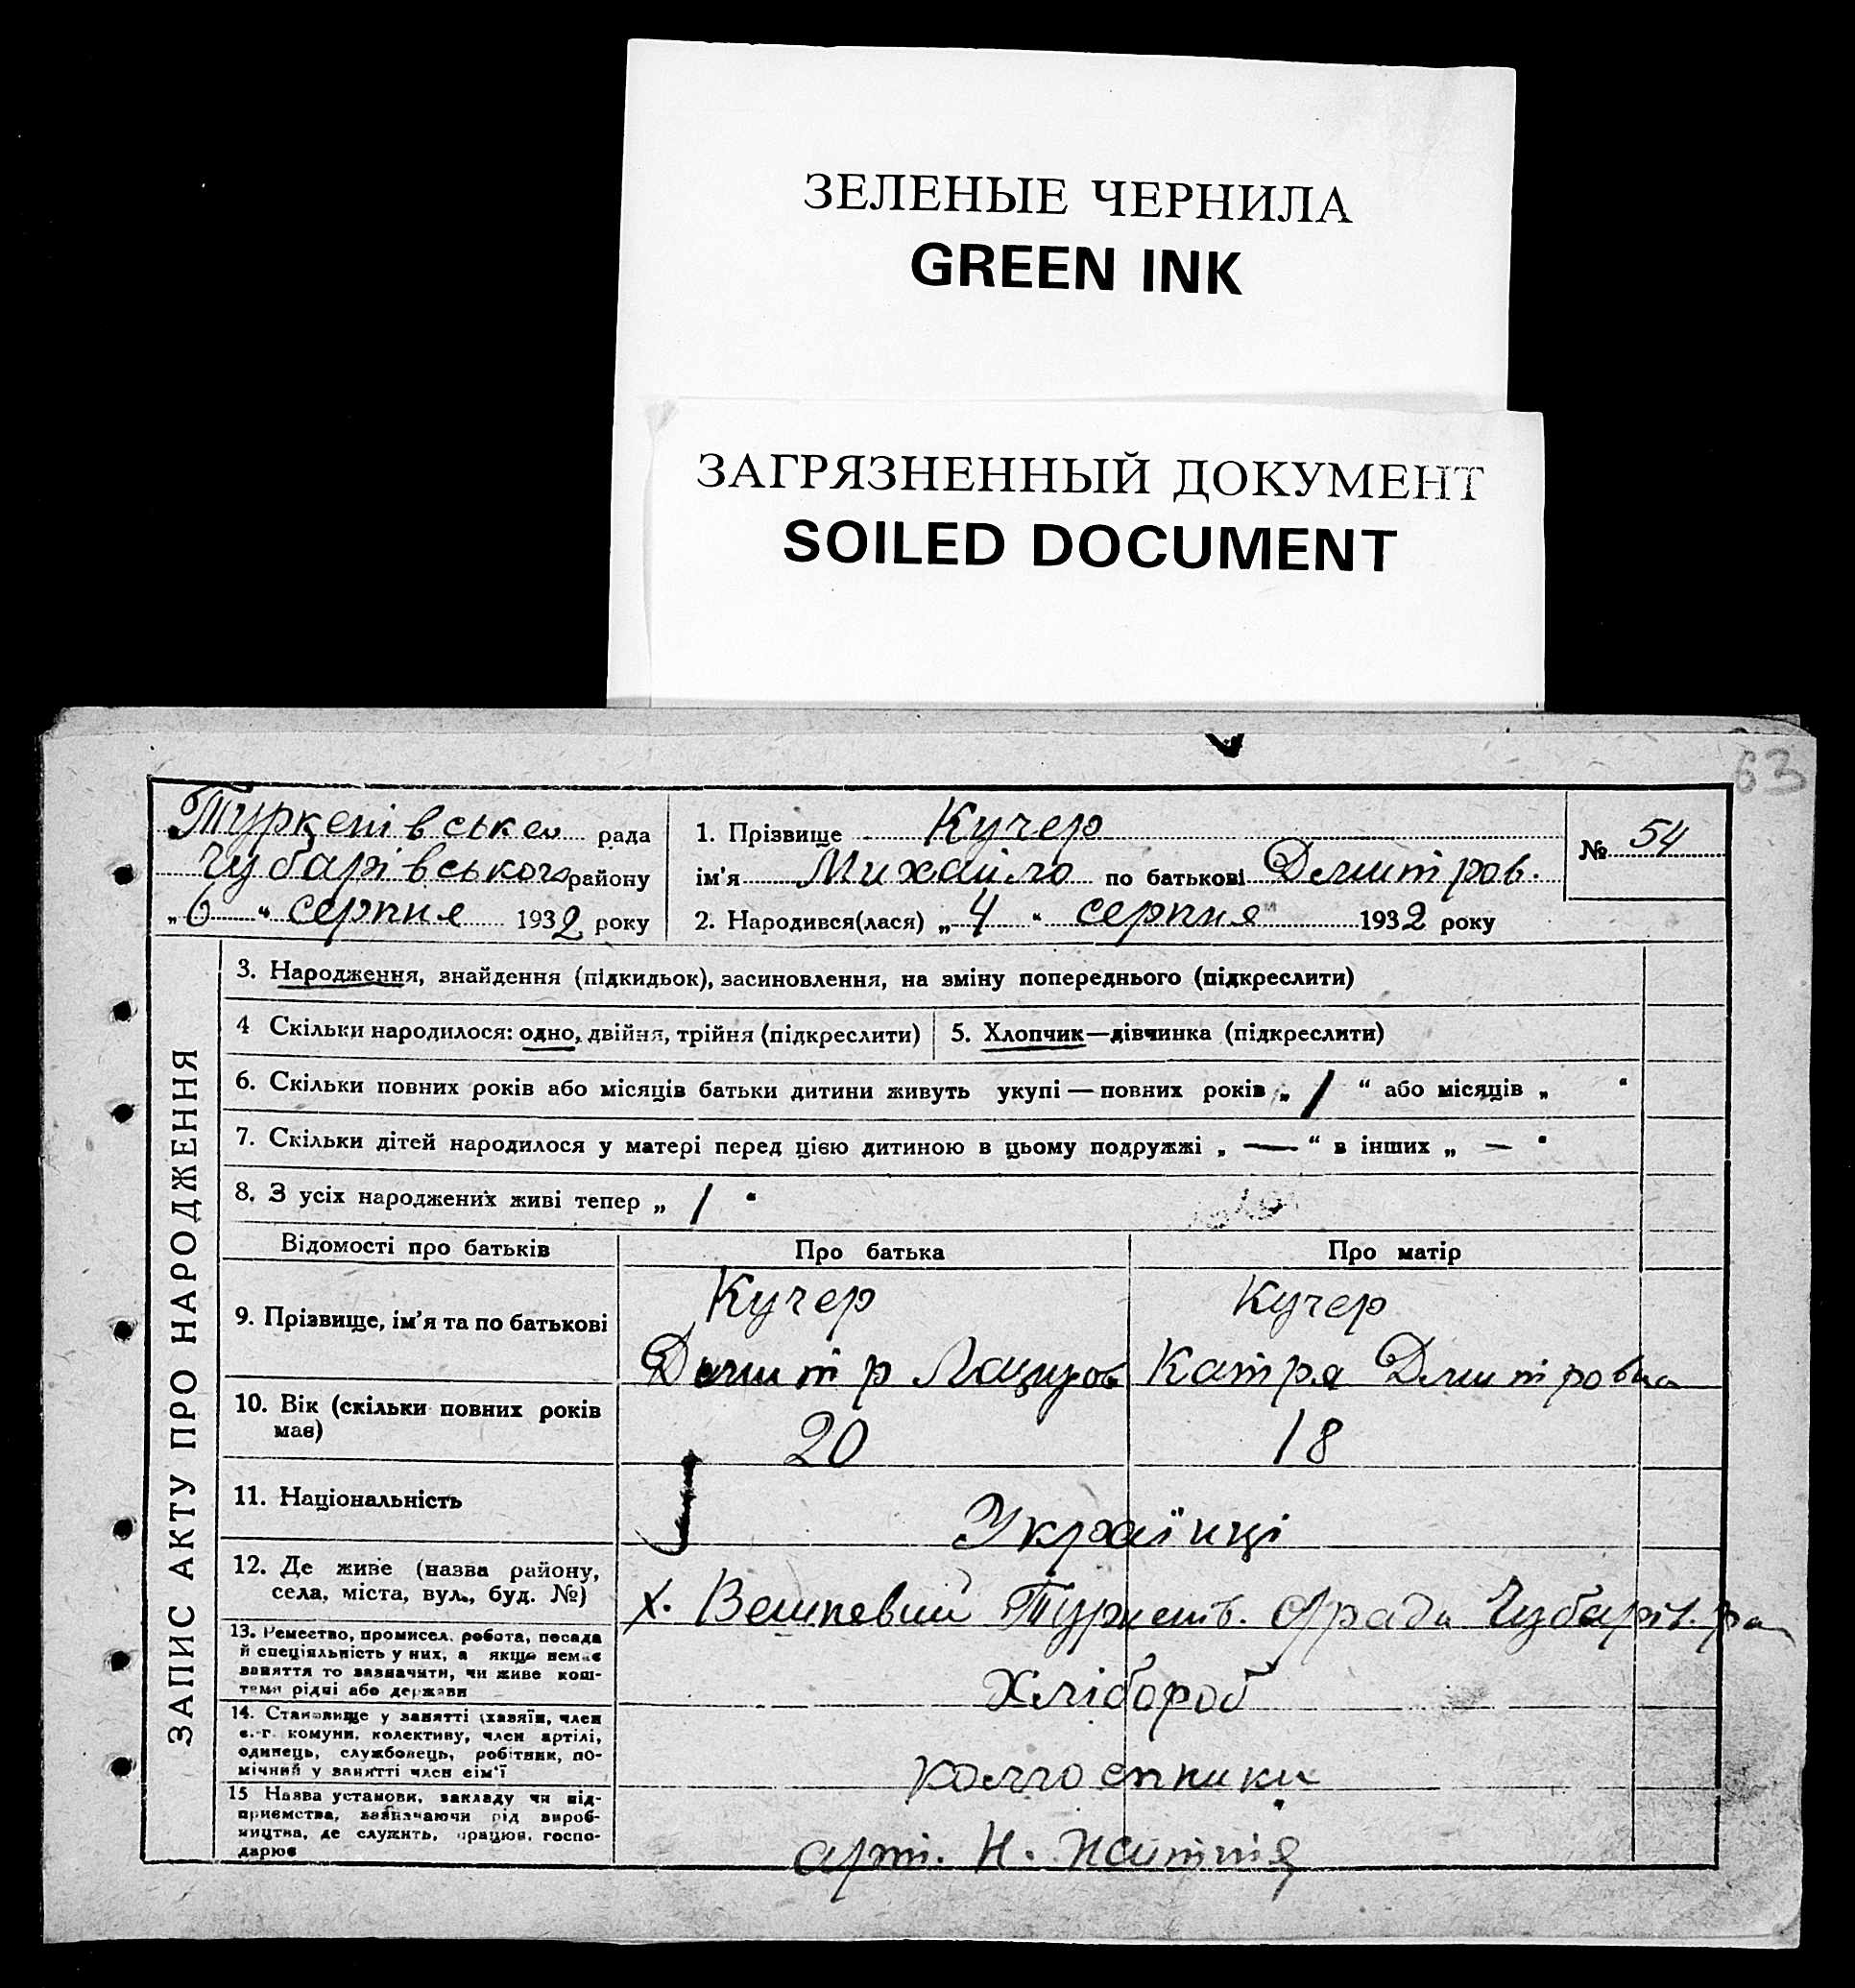 ЗЕЛЕНЫЕ ЧЕРНИЛА
GREEN INK
ЗАГРЯЗНЕННЫЙ ДОКУМЕНТ
SOILED DOCUMENT
63
Туркенівська рада
Чубарівського району
„ 6 “ серпня 1932 року
1. Прізвище Кучер
ім'я Михайло по батькові Дмитров.
№ 54
2. Народився(лася) „ 4 “ серпня 1932 року
ЗАПИС АКТУ ПРО НАРОДЖЕННЯ
3. Народження, знайдення (підкидьок), засиновлення, на зміну попереднього (підкреслити)
4 Скільки народилося: одно, двійня, трійня (підкреслити)
5. Хлопчик—дівчинка (підкреслити)
6. Скільки повних років або місяців батьки дитини живуть укупі — повних років „ 1 “ або місяців „ “
7. Скільки дітей народилося у матері перед цією дитиною в цьому подружжі „ — “ в інших „ — “
8. З усіх народжених живі тепер „ 1 “
Відомості про батьків
Про батька
Про матір
9. Прізвище, ім'я та по батькові
Кучер
Дмитр
Кучер
Катря Дмитровна
10. Вік (скільки повних років
має)
20
18
11. Національність
Українці
12. Де живе (назва району,
села, міста, вул., буд. №)
х. Чубарів. ра
13. Ремество, промисел, робота, посада
й спеціяльність у них, а якщо немає
заняття то зазначити, чи живе кош-
тами рідні або держави
Хлібороб
14. Становище у занятті (хазяїн, член
с.-г. комуни, колективу, член артілі,
одинець, службовець, робітник, по-
мічний у занятті член сім'ї
колгоспники
15 Назва установи, закладу чи під-
приємства, зазначаючи рід вироб-
ництва, де служить, працює, госпо-
дарює
арт. Н. Життя